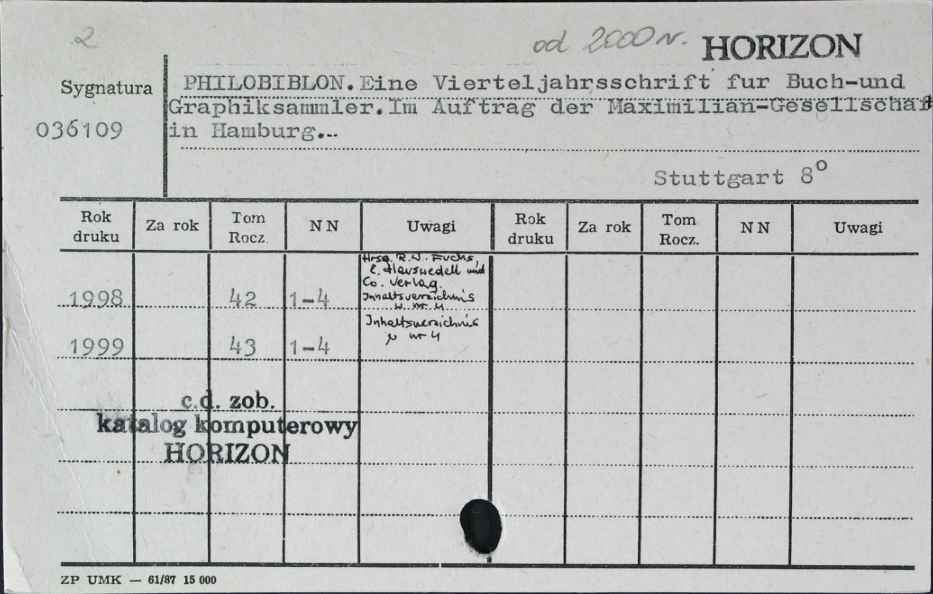 2
od 2000 r. HORIZON
Sygnatura
036109
PHILOBIBLON. Eine Vierteljahrsschrift fur Buch-und
Graphiksammler. Im Auftrag der Maximilian-Gesellschaf
in Hamburg...
Stuttgart 8°
Rok druku Za rok Tom Rocz. N N Uwagi Rok druku Za rok Tom Rocz. N N Uwagi
Hrsg. R.W. Fuchs,
E. Hauswedell und
Co. Verlag.
Inhaltsverzeichnis
w nr 4
1998 42 1-4
Inhaltsverzeichnis
w nr 4
1999 43 1-4
c.d. zob.
katalog komputerowy
HORIZON
ZP UMK — 61/87 15 000